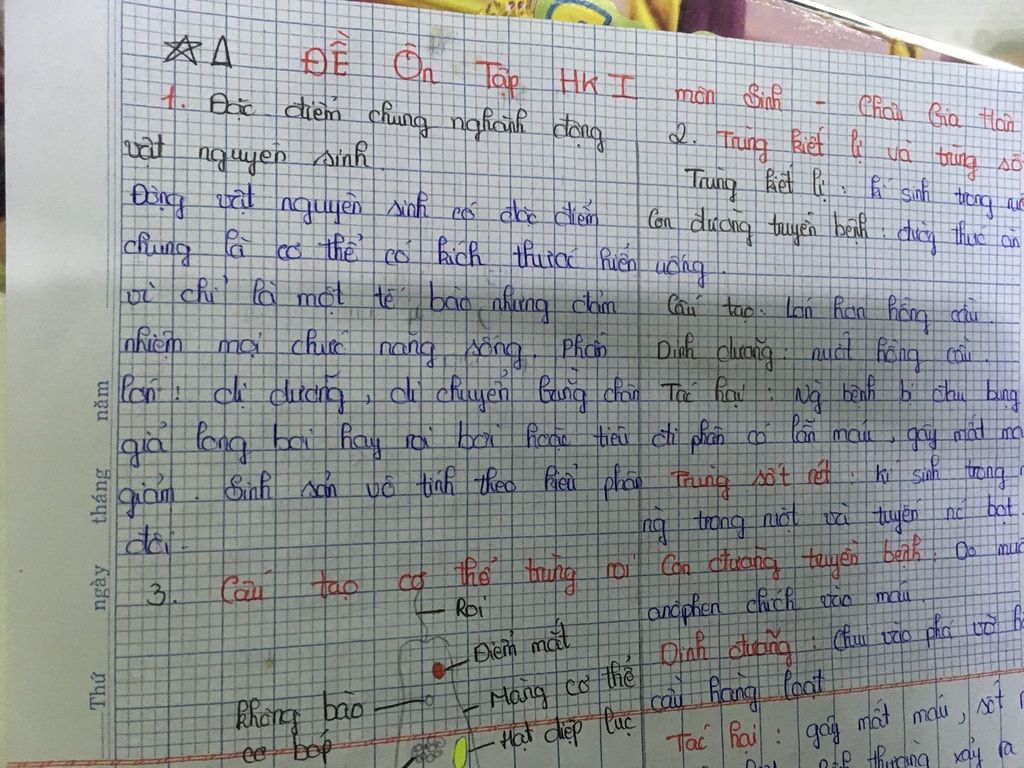 ĐỀ Ôn Tập HK I môn Sinh - Châu Gia Hân
1. Đặc điểm chung nghành động
vật nguyên sinh.
Động vật nguyên sinh có đặc điểm
chung là cơ thể có kích thước hiển
vi chỉ là một tế bào nhưng đảm
nhiệm mọi chức năng sống. Phần
lớn : dị dưỡng, di chuyển bằng chân
giả lông bơi hay roi bơi hoặc tiêu
giảm. Sinh sản vô tính theo kiểu phân
đôi.
3. Cấu tạo cơ thể trùng roi
Roi
Điểm mắt
Màng cơ thể
Hạt diệp lục
không bào
co bóp
2. Trùng kiết lị và trùng số
Trùng kiết lị : kí sinh trong
Con đường truyền bệnh : đường thức ăn
uống.
Cấu tạo : lớn hơn hồng cầu.
Dinh dưỡng : nuốt hồng cầu.
Tác hại : Ng bệnh bị đau bụng
đi phân có lẫn máu, gây mất
Trùng sốt rét : kí sinh trong
ng trong ruột và tuyến nc bọt
Con đường truyền bệnh. Do muỗ
anôphen chích vào máu.
Dinh dưỡng : Chui vào phá vỡ h
cầu hàng loạt
Tác hại : gây mất máu, sốt
thường xảy ra
Thứ ngày tháng năm